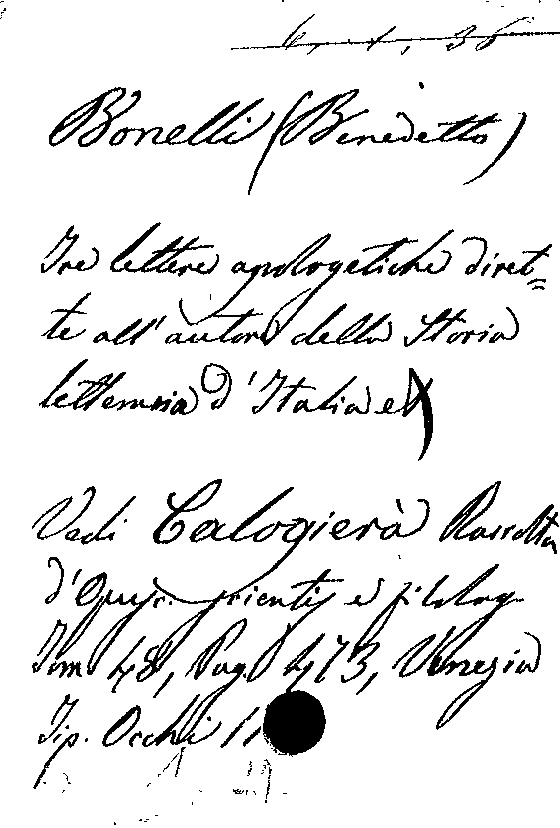 Bonelli (Benedetto)
Tre lettere apologetiche diret=
te all'autore della Storia
letteraria d'Italia
Vedi Calogierà Raccolta
d'Opusc. scientif e filolog
Tom 48, Pag. 473, Venezia
Tip. Occhi